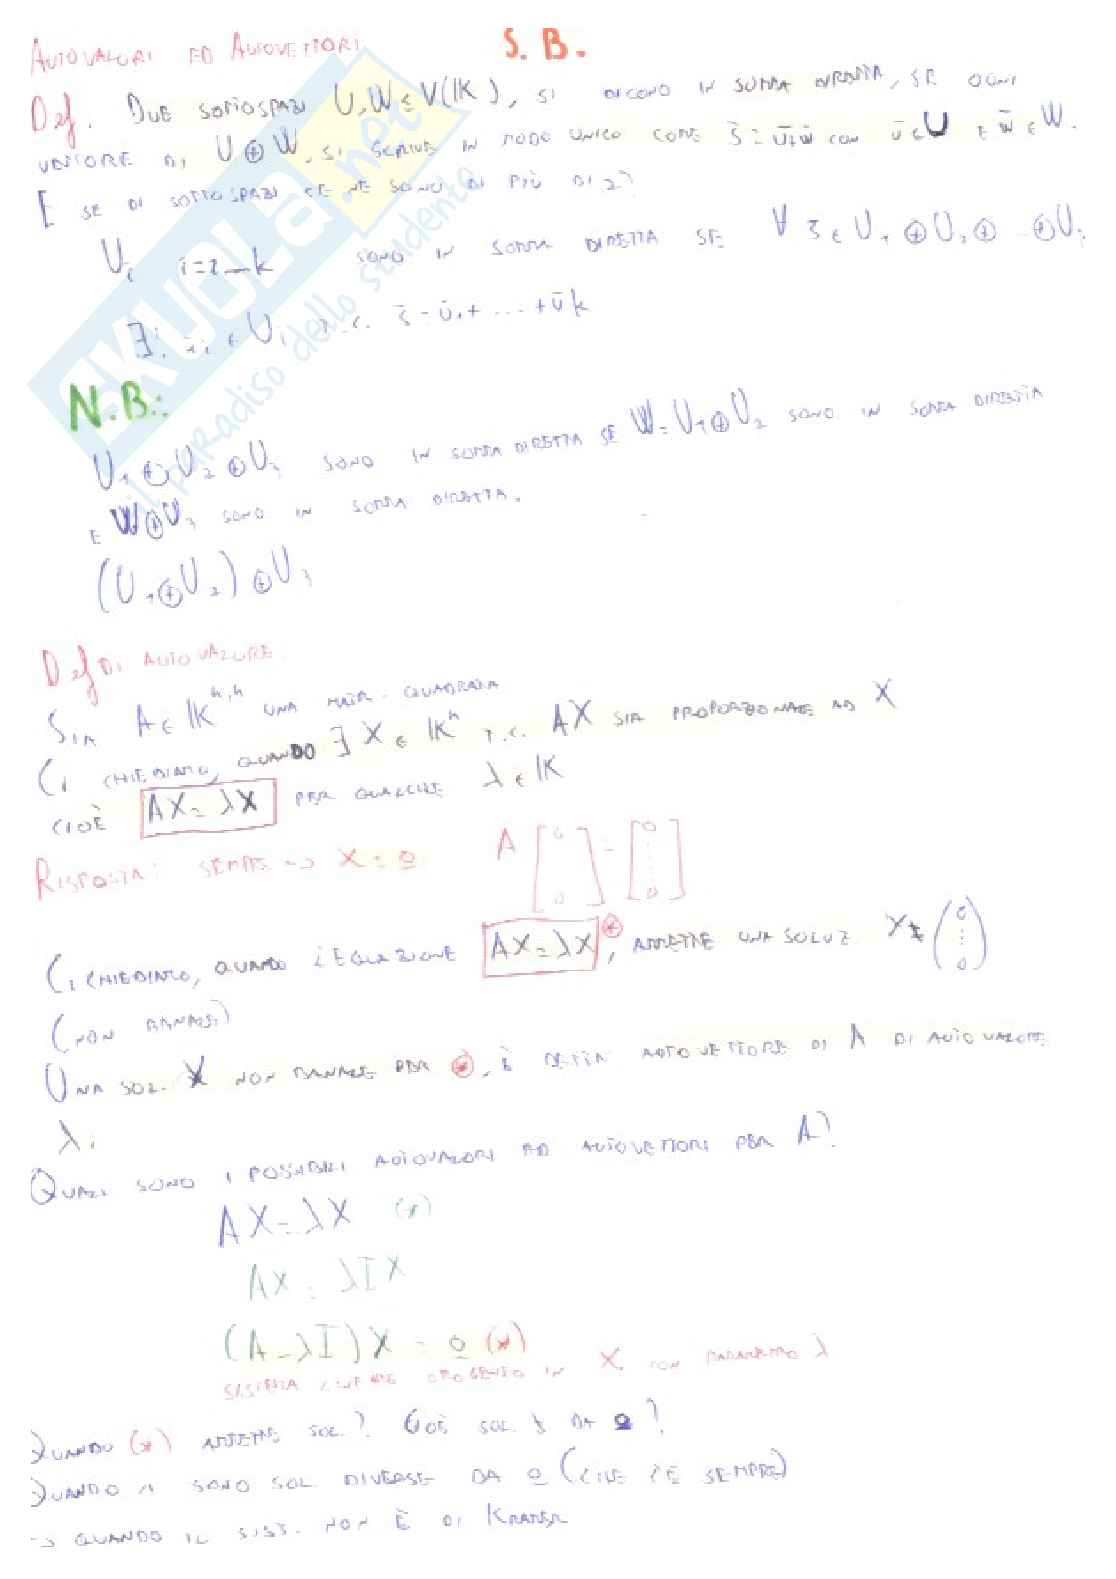 AUTOVALORI ED AUTOVETTORI S. B.
Def. DUE SOTTOSPAZI U, W ≤ V(IK), SI DICONO IN SOMMA DIRETTA, SE OGNI
VETTORE DI U ⊕ W, SI SCRIVE IN MODO UNICO COME s̄ = ū+w̄ CON ū ∈ U E w̄ ∈ W.
E SE DI SOTTOSPAZI CE NE SONO DI PIÙ DI 2?
Ui i=1—k SONO IN SOMMA DIRETTA SE ∀ s ∈ U1 ⊕ U2 ⊕ ... ⊕ Ui
∃! ūi ∈ Ui T.C. s̄ = ū1 + ... + ūk
N.B.:
U1 ⊕ U2 ⊕ U3 SONO IN SOMMA DIRETTA SE W = U1 ⊕ U2 SONO IN SOMMA DIRETTA
E W ⊕ U3 SONO IN SOMMA DIRETTA.
(U1 ⊕ U2) ⊕ U3
Def DI AUTOVALORE
SIA A ∈ IK^n,n UNA MATR. QUADRATA
CI CHIEDIAMO, QUANDO ∃ X ∈ IK^n T.C. AX SIA PROPORZIONALE AD X
CIOÈ AX = λX PER QUALCHE λ ∈ IK
RISPOSTA: SEMPRE -> X = 0 A [0 0] = [0 ⋮ 0]
CI CHIEDIAMO, QUANDO L'EQUAZIONE AX = λX (*), AMMETTE UNA SOLUZ X ≠ (0 ⋮ 0)
(NON BANALE)
UNA SOL. X NON BANALE PER (*), È DETTA AUTOVETTORE DI A DI AUTOVALORE
λ.
QUALI SONO I POSSIBILI AUTOVALORI ED AUTOVETTORI PER A?
AX = λX (*)
AX = λIX
(A - λI) X = 0 (*)
SISTEMA LINEARE OMOGENEO IN X CON PARAMETRO λ
QUANDO (*) AMMETTE SOL.? CIOÈ SOL. ≠ DA 0?
QUANDO CI SONO SOL DIVERSE DA 0 (CHE C'È SEMPRE)
-> QUANDO IL SIST. NON È DI KRAMER
SKUOLA.net
il paradiso dello studente